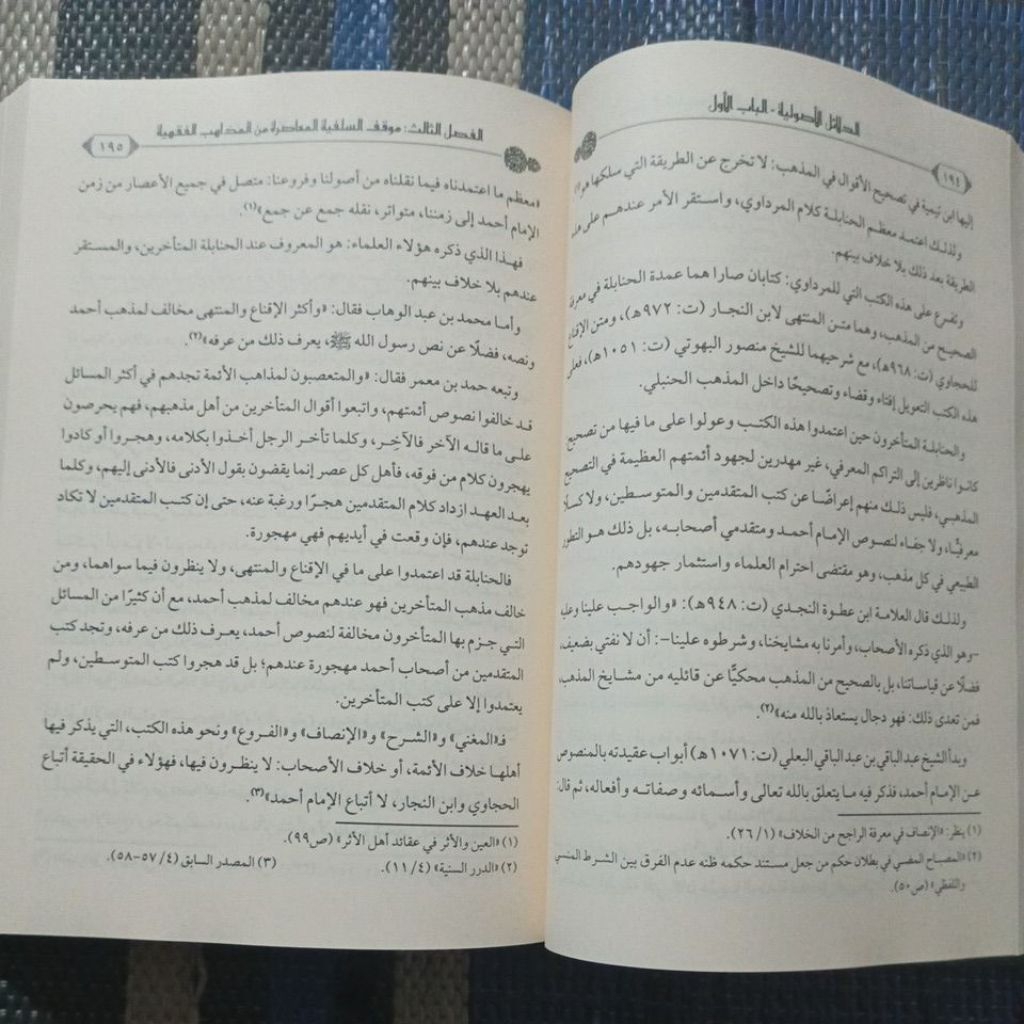 الدلائل الأصولية - الباب الأول
١٩٤
إليها ابن تيمية في تصحيح الأقوال في المذهب: لا تخرج عن الطريقة التي سلكها هو(١)
ولذلك اعتمد معظم الحنابلة كلام المرداوي، واستقر الأمر عندهم على هذه
الطريقة بعد ذلك بلا خلاف بينهم.
وتفرع على هذه الكتب التي للمرداوي: كتابان صارا هما عمدة الحنابلة في معرفة
الصحيح من المذهب، وهما متن المنتهى لابن النجار (ت: ٩٧٢هـ)، ومتن الإقناع
للحجاوي (ت: ٩٦٨هـ)، مع شرحيهما للشيخ منصور البهوتي (ت: ١٠٥١هـ)، فعلى
هذه الكتب التعويل إفتاء وقضاء وتصحيحًا داخل المذهب الحنبلي.
والحنابلة المتأخرون حين اعتمدوا هذه الكتب وعولوا على ما فيها من تصحيح
كانوا ناظرين إلى التراكم المعرفي، غير مهدرين لجهود أئمتهم العظيمة في التصحيح
المذهبي، فليس ذلك منهم إعراضًا عن كتب المتقدمين والمتوسطين، ولا كسلًا
معرفيًّا، ولا جفاء لنصوص الإمام أحمد ومتقدمي أصحابه، بل ذلك هو التطور
الطبيعي في كل مذهب، وهو مقتضى احترام العلماء واستثمار جهودهم.
ولذلك قال العلامة ابن عطوة النجدي (ت: ٩٤٨هـ): «والواجب علينا وعليه
-وهو الذي ذكره الأصحاب، وأمرنا به مشايخنا، وشرطوه علينا-: أن لا نفتي بضعيف،
فضلًا عن قياساتنا، بل بالصحيح من المذهب محكيًّا عن قائليه من مشايخ المذهب،
فمن تعدى ذلك: فهو دجال يستعاذ بالله منه»(٢).
وبدأ الشيخ عبد الباقي بن عبد الباقي البعلي (ت: ١٠٧١هـ) أبواب عقيدته بالمنصوص
عن الإمام أحمد، فذكر فيه ما يتعلق بالله تعالى وأسمائه وصفاته وأفعاله، ثم قال:
(١) ينظر: «الإنصاف في معرفة الراجح من الخلاف» (١/ ٢٦).
(٢) «المصباح المضي في بطلان حكم من جعل مستند حكمه ظنه عدم الفرق بين الشرط المنسي
واللفظي» (ص٥٠).
الفصل الثالث: موقف السلفية المعاصرة من المذاهب الفقهية
١٩٥
«معظم ما اعتمدناه فيما نقلناه من أصولنا وفروعنا: متصل في جميع الأعصار من زمن
الإمام أحمد إلى زمننا، متواتر، نقله جمع عن جمع»(١).
فهذا الذي ذكره هؤلاء العلماء: هو المعروف عند الحنابلة المتأخرين، والمستقر
عندهم بلا خلاف بينهم.
وأما محمد بن عبد الوهاب فقال: «وأكثر الإقناع والمنتهى مخالف لمذهب أحمد
ونصه، فضلًا عن نص رسول الله ﷺ، يعرف ذلك من عرفه»(٢).
وتبعه حمد بن معمر فقال: «والمتعصبون لمذاهب الأئمة تجدهم في أكثر المسائل
قد خالفوا نصوص أئمتهم، واتبعوا أقوال المتأخرين من أهل مذهبهم، فهم يحرصون
على ما قاله الآخر فالآخِر، وكلما تأخر الرجل أخذوا بكلامه، وهجروا أو كادوا
يهجرون كلام من فوقه، فأهل كل عصر إنما يقضون بقول الأدنى فالأدنى إليهم، وكلما
بعد العهد ازداد كلام المتقدمين هجرًا ورغبة عنه، حتى إن كتب المتقدمين لا تكاد
توجد عندهم، فإن وقعت في أيديهم فهي مهجورة.
فالحنابلة قد اعتمدوا على ما في الإقناع والمنتهى، ولا ينظرون فيما سواهما، ومن
خالف مذهب المتأخرين فهو عندهم مخالف لمذهب أحمد، مع أن كثيرًا من المسائل
التي جزم بها المتأخرون مخالفة لنصوص أحمد، يعرف ذلك من عرفه، وتجد كتب
المتقدمين من أصحاب أحمد مهجورة عندهم؛ بل قد هجروا كتب المتوسطين، ولم
يعتمدوا إلا على كتب المتأخرين.
فـ«المغني» و«الشرح» و«الإنصاف» و«الفروع» ونحو هذه الكتب، التي يذكر فيها
أهلها خلاف الأئمة، أو خلاف الأصحاب: لا ينظرون فيها، فهؤلاء في الحقيقة أتباع
الحجاوي وابن النجار، لا أتباع الإمام أحمد»(٣).
(١) «العين والأثر في عقائد أهل الأثر» (ص٩٩).
(٢) «الدرر السنية» (٤/ ١١). (٣) المصدر السابق (٤/ ٥٧-٥٨).